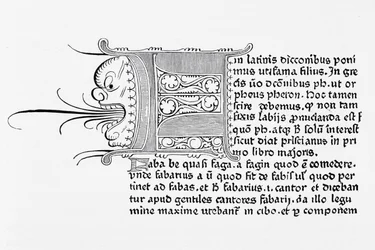 in latinis dictionibus poni
mus ut fama filius. In gre
cis ũo dc̃onibus ph. ut or
pheus pheton. Nos tamen
scire debemus. q̃ non tam
fixis labijs ꝓnuncianda est f
quō ph. atq̃ B solũ interest
sicut dicit priscianus in pri
mo libro majoris.
Faba be quasi faga. a fagin quod ē comedere.
vnde fabarius a ũ quod fit de fabis ul' quod per
tinet ad fabas. et B fabarius. i. cantor et diceban
tur apud gentiles cantores fabarij. da illo legu
mine maxime utebant' in cibo. et ꝓ componem